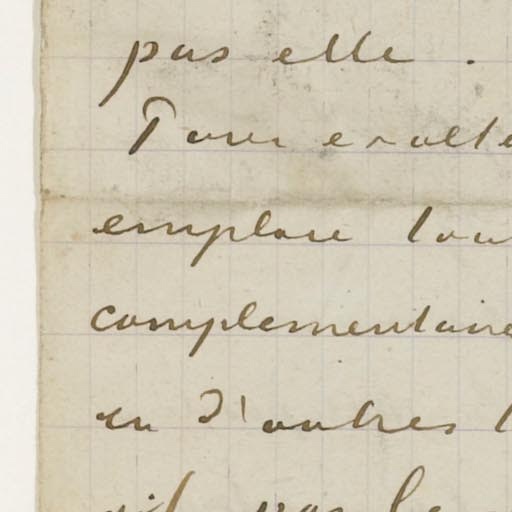 pas elle.
Pour exalte
emploie tou
complementaire
en d'autres
pas le